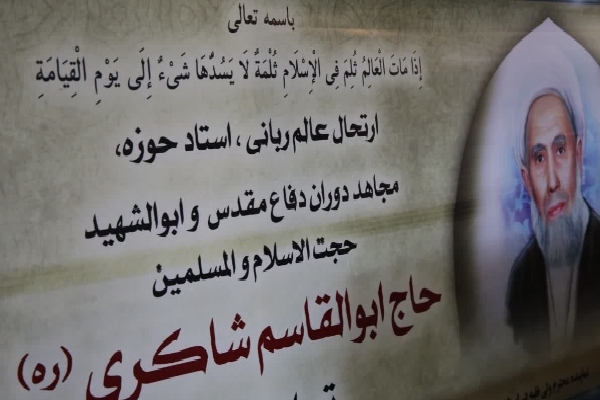 باسمه تعالی
إِذَا مَاتَ الْعَالِمُ ثُلِمَ فِی الْإِسْلَامِ ثُلْمَةٌ لَا يَسُدُّهَا شَیْءٌ إِلَی يَوْمِ الْقِيَامَةِ
ارتحال عالم ربانی ، استاد حوزه،
مجاهد دوران دفاع مقدس و ابوالشهید
حجت الاسلام و المسلمین
حاج ابوالقاسم شاکری (ره)
نماینده محترم ولی فقیه در